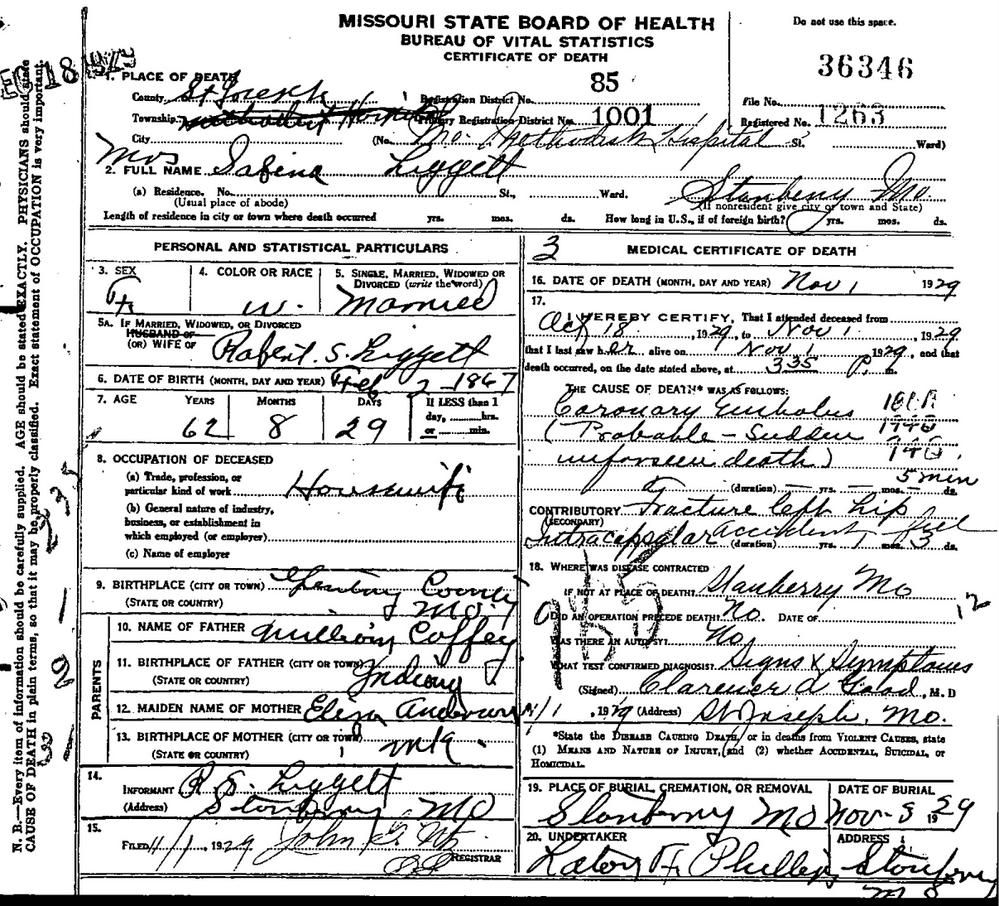 MISSOURI STATE BOARD OF HEALTH
BUREAU OF VITAL STATISTICS
CERTIFICATE OF DEATH
Do not use this space.
36346
1. PLACE OF DEATH
County St Joseph Registration District No. 85 File No.
Township Primary Registration District No. 1001 Registered No. 1263
City (No. Mo. Methodist Hospital St. Ward)
2. FULL NAME Mrs Sabina Liggett
(a) Residence. No. St., Ward. Stanberry Mo
(Usual place of abode) (If nonresident give city or town and State)
Length of residence in city or town where death occurred yrs. mos. ds. How long in U.S., if of foreign birth? yrs. mos. ds.
PERSONAL AND STATISTICAL PARTICULARS
3. SEX F. 4. COLOR OR RACE W. 5. SINGLE, MARRIED, WIDOWED OR DIVORCED (write the word) Married
5A. IF MARRIED, WIDOWED, OR DIVORCED
HUSBAND OF
(OR) WIFE OF Robert. S. Liggett
6. DATE OF BIRTH (MONTH, DAY AND YEAR) Feb 2 - 1867
7. AGE YEARS MONTHS DAYS If LESS than 1
day, hrs.
or min.
62 8 29
8. OCCUPATION OF DECEASED
(a) Trade, profession, or
particular kind of work Housewife
(b) General nature of industry,
business, or establishment in
which employed (or employer)
(c) Name of employer
9. BIRTHPLACE (CITY OR TOWN) Gentry County
(STATE OR COUNTRY) Mo.
PARENTS
10. NAME OF FATHER William Coffey
11. BIRTHPLACE OF FATHER (CITY OR TOWN)
(STATE OR COUNTRY) Indiana
12. MAIDEN NAME OF MOTHER Eliza Anderson
13. BIRTHPLACE OF MOTHER (CITY OR TOWN)
(STATE OR COUNTRY) unk.
14.
INFORMANT R. S. Liggett
(Address) Stanberry Mo
15.
FILED 11/1, 1929 John REGISTRAR
3 MEDICAL CERTIFICATE OF DEATH
16. DATE OF DEATH (MONTH, DAY AND YEAR) Nov 1 1929
17.
I HEREBY CERTIFY, That I attended deceased from
Oct 18, 1929, to Nov 1, 1929
that I last saw her alive on Nov 1 1929, and that
death occurred, on the date stated above, at 335 P. m.
THE CAUSE OF DEATH* WAS AS FOLLOWS:
Coronary Embolus
(Probable - Sudden
unforseen death)
5 min
(duration) yrs. mos. ds.
CONTRIBUTORY Fracture left hip
(SECONDARY)
Intracapsular accident, fell
(duration) yrs. mos. 3 ds.
18. WHERE WAS DISEASE CONTRACTED
IF NOT AT PLACE OF DEATH? Stanberry Mo
DID AN OPERATION PRECEDE DEATH? No. DATE OF
WAS THERE AN AUTOPSY? No
WHAT TEST CONFIRMED DIAGNOSIS? Signs & Symptoms
(Signed) Clarence A Good, M. D
11/1, 1929 (Address) St Joseph, Mo.
*State the DISEASE CAUSING DEATH, or in deaths from VIOLENT CAUSES, state
(1) MEANS AND NATURE OF INJURY, and (2) whether ACCIDENTAL, SUICIDAL, or
HOMICIDAL.
19. PLACE OF BURIAL, CREMATION, OR REMOVAL DATE OF BURIAL
Stanberry Mo Nov - 3 1929
20. UNDERTAKER ADDRESS
Phillips Stanberry
Mo
N. B.—Every item of information should be carefully supplied. AGE should be stated EXACTLY. PHYSICIANS should state
CAUSE OF DEATH in plain terms, so that it may be properly classified. Exact statement of OCCUPATION is very important.